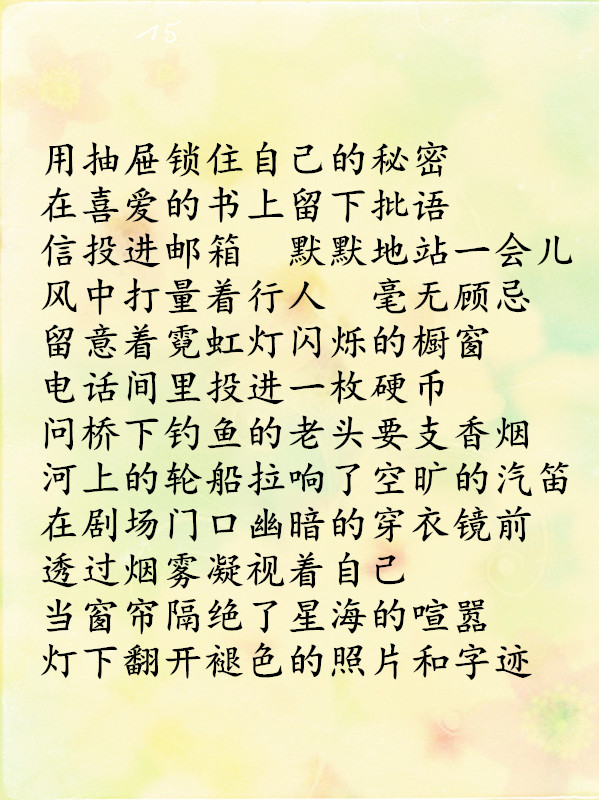 15
用抽屉锁住自己的秘密
在喜爱的书上留下批语
信投进邮箱　默默地站一会儿
风中打量着行人　毫无顾忌
留意着霓虹灯闪烁的橱窗
电话间里投进一枚硬币
问桥下钓鱼的老头要支香烟
河上的轮船拉响了空旷的汽笛
在剧场门口幽暗的穿衣镜前
透过烟雾凝视着自己
当窗帘隔绝了星海的喧嚣
灯下翻开褪色的照片和字迹